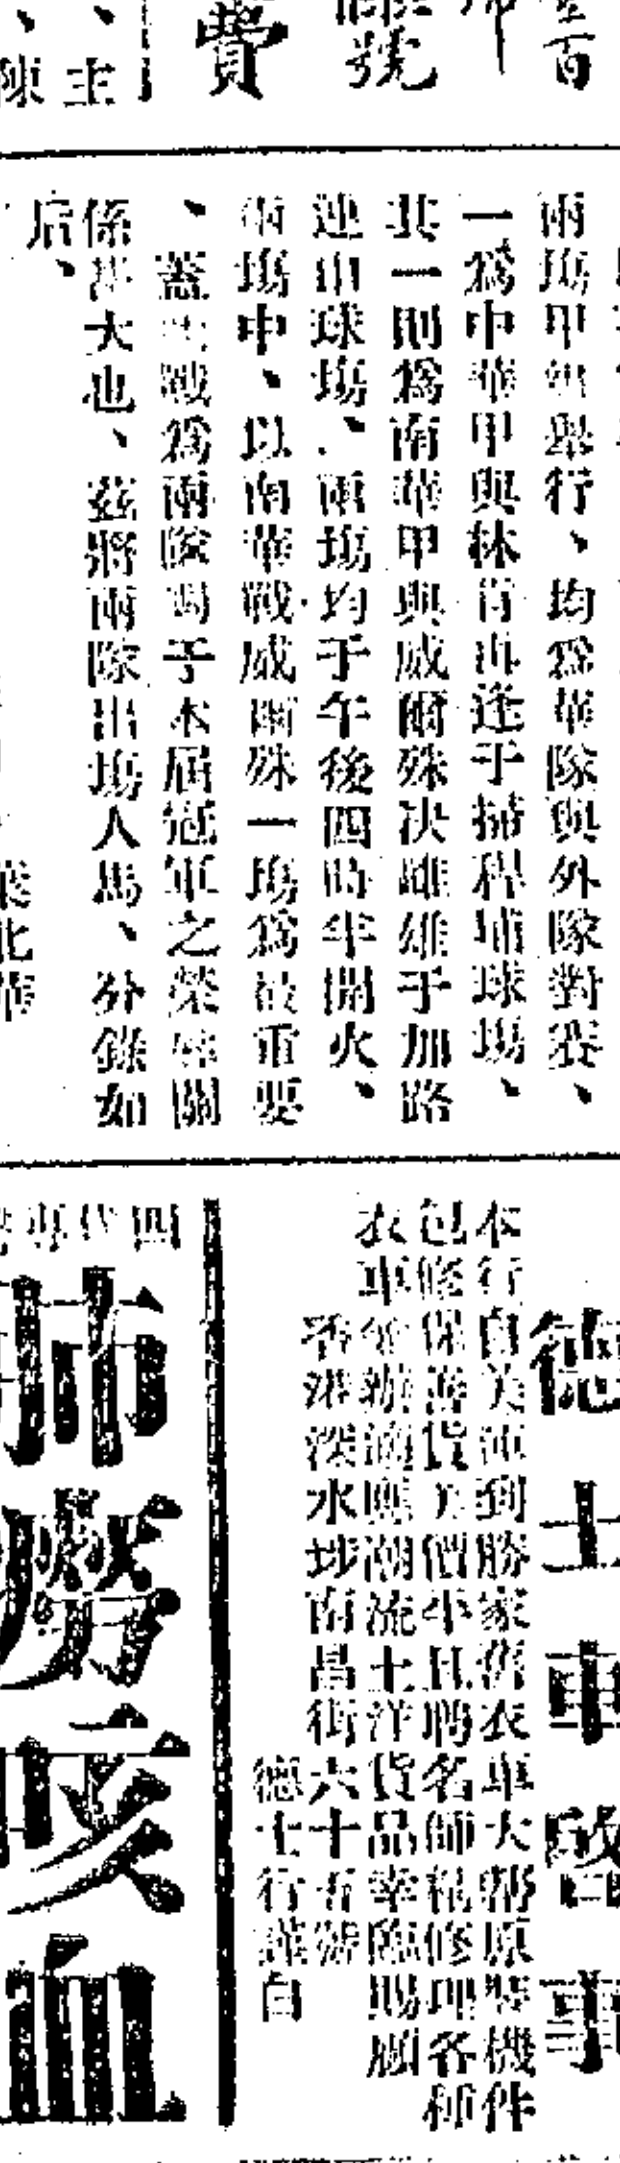 費
號
百
、主
陳
兩塲甲組舉行、均爲華隊與外隊對賽、
一爲中華甲與林肯再逢于掃桿埔球塲、
其一則爲南華甲與威爾殊决雌雄于加路
連山球塲、兩塲均于午後四時半開火、
兩塲中、以南華戰威爾殊一塲爲最重要
、蓋此戰爲兩隊爭于本屆冠軍之榮辱關
係非大也、茲將兩隊出塲人馬、分錄如
后、
德士車啓事
本行自美運到勝家舊衣車大帮原裝機件
包修保善貨美價平且聘名師精修理各種
衣車兼辦適應潮流土洋貨品幸臨賜顧
香港深水埗南昌街六十五號
德士行謹白
四代專
肺癆咳血